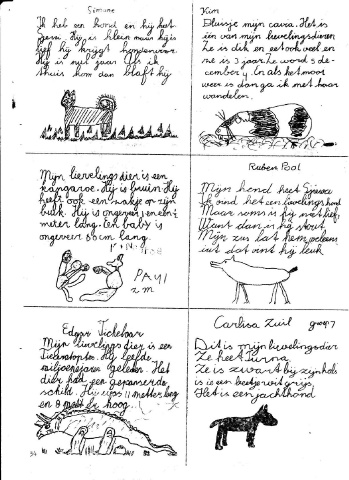 Simone
Ik heb een hond en hij het
Hij is klein maar hij is
lief hij krijgt hondenvoer.
Hij is acht jaar als ik
thuis kom dan blaft hij
Kim
Pluisje mijn cavia. Het is
één van mijn lievelingsdieren
Ze is dik en eet ook veel en
ze is 3 jaar ze word 5 de-
cember 4 En als het mooi
weer is dan ga ik met haar
wandelen.
Mijn lievelings dier is een
kangaroe. Hij is bruin Hij
heeft ook een zakje op zijn
buik. Hij is ongeveer 1 en een 1/2
meter lang. Een baby is
ongeveer 50 cm lang.
PAUL
2m
Ruben Pool
Mijn hond heet
Ik vind het een lievelings hond
Maar soms is hij niet lief,
Want dan is hij stout
Mijn zus laat hem
uit dat vint hij leuk
Edgar Tichelaar
Mijn lievelings dier is een
Hij leefde
miljoenejaren geleden. Het
dier had een gepanserde
schild. Hij was 11 metter lang
en 8 meter hoog.
34
Carlisa Zuil groep 7
Dit is mijn lievelingsdier
Ze heet Turna
Ze is zwart bij zijn hals
is ie een beetje wit grijs,
Het is een jachthond